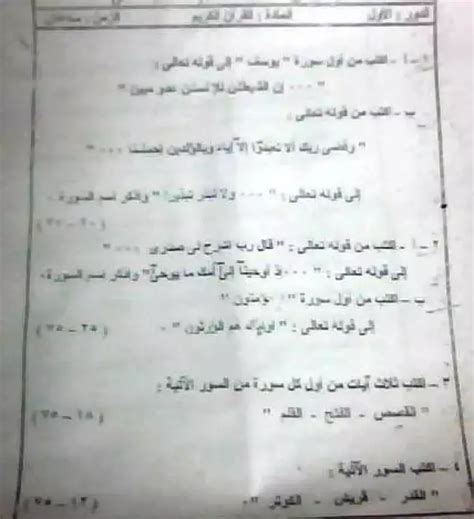 الدور : الأول المادة : القرآن الكريم الزمن : ساعتان
١ - أ - اكتب من أول سورة " يوسف " إلى قوله تعالى :
" ٠٠٠ إن الشيطان للإنسان عدو مبين "
ب - اكتب من قوله تعالى :
" وقضى ربك ألا تعبدوا إلا إياه وبالوالدين إحسانا ٠٠٠ "
إلى قوله تعالى : " ٠٠٠ ولا تبذر تبذيرا " واذكر اسم السورة .
٢ - أ - اكتب من قوله تعالى : " قال رب اشرح لى صدرى ٠٠٠ "
إلى قوله تعالى : " ٠٠٠ إذ أوحينا إلى أمك ما يوحى " واذكر اسم السورة .
ب - اكتب من أول سورة " المؤمنون "
إلى قوله تعالى : " أولئك هم الوارثون " . ( ٢٥ - ٧٥ )
٣ - اكتب ثلاث آيات من أول كل سورة من السور الآتية :
" القصص - الفتح - القلم " ( ١٨ - ٧٥ )
٤ - اكتب السور الآتية :
" القدر - قريش - الكوثر " . ( ١٢ - ٧٥ )